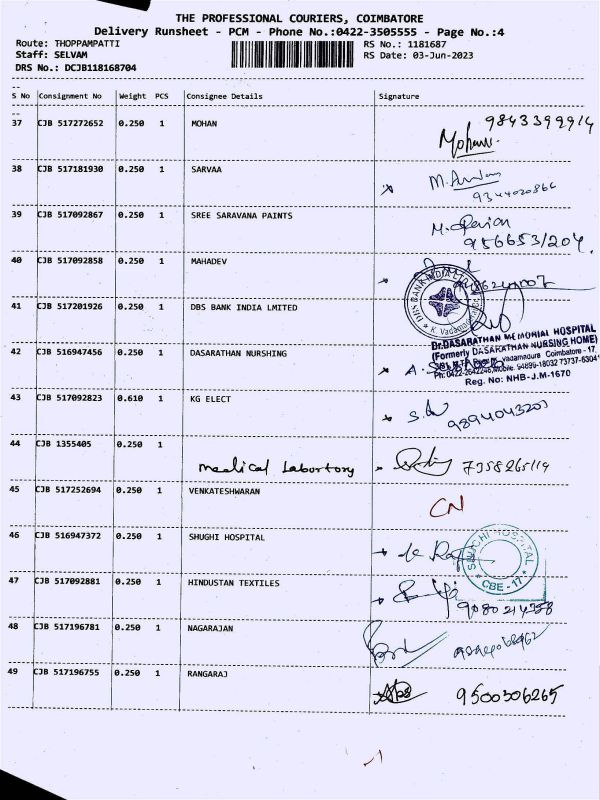 THE PROFESSIONAL COURIERS, COIMBATORE
Delivery Runsheet - PCM - Phone No.:0422-3505555 - Page No.:4
Route: THOPPAMPATTI RS No.: 1181687
Staff: SELVAM RS Date: 03-Jun-2023
DRS No.: DCJB118168704
S No Consignment No Weight PCS Consignee Details Signature
37 CJB 517272652 0.250 1 MOHAN 9843399914
Mohan
38 CJB 517181930 0.250 1 SARVAA
9344020866
39 CJB 517092867 0.250 1 SREE SARAVANA PAINTS
9566531204
40 CJB 517092858 0.250 1 MAHADEV
DBS BANK INDIA LTD
41 CJB 517201926 0.250 1 DBS BANK INDIA LMITED
Dr.DASARATHAN MEMORIAL HOSPITAL
(Formerly DASARATHAN NURSING HOME)
42 CJB 516947456 0.250 1 DASARATHAN NURSHING
Vadamadura Coimbatore - 17,
Reg. No: NHB-J.M-1670
43 CJB 517092823 0.610 1 KG ELECT
9894043203
44 CJB 1355405 0.250 1
Medical Labortory 7358265119
45 CJB 517252694 0.250 1 VENKATESHWARAN CN
46 CJB 516947372 0.250 1 SHUGHI HOSPITAL
HOSPITAL
CBE - 17
47 CJB 517092881 0.250 1 HINDUSTAN TEXTILES
9080214738
48 CJB 517196781 0.250 1 NAGARAJAN
49 CJB 517196755 0.250 1 RANGARAJ 9500306265